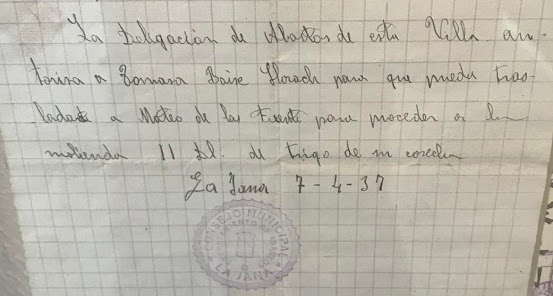 La Delegación de Abastos de esta Villa au-
toriza a para que pueda tras-
ladar a Mateo de las Fuente para proceder a la
molienda 11 Dl. de trigo de su cosecha
La Jana 7-4-37
CONSEJO MUNICIPAL
LA JANA